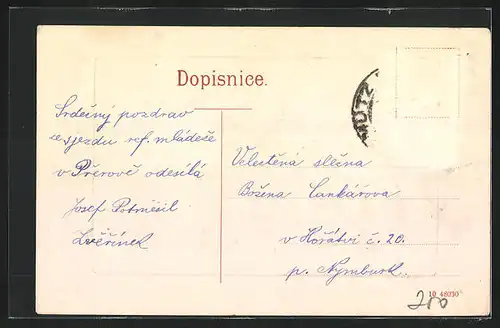 Dopisnice.
Srdečný pozdrav
ze sjezdu ref. mládeže
v Přerově odesílá
Josef Potměšil
Zvěřínek
Velectěná slečna
Božena Cankářova
v Hořátvi č. 20.
p. Nymburk
MUTZ
19 46030
200